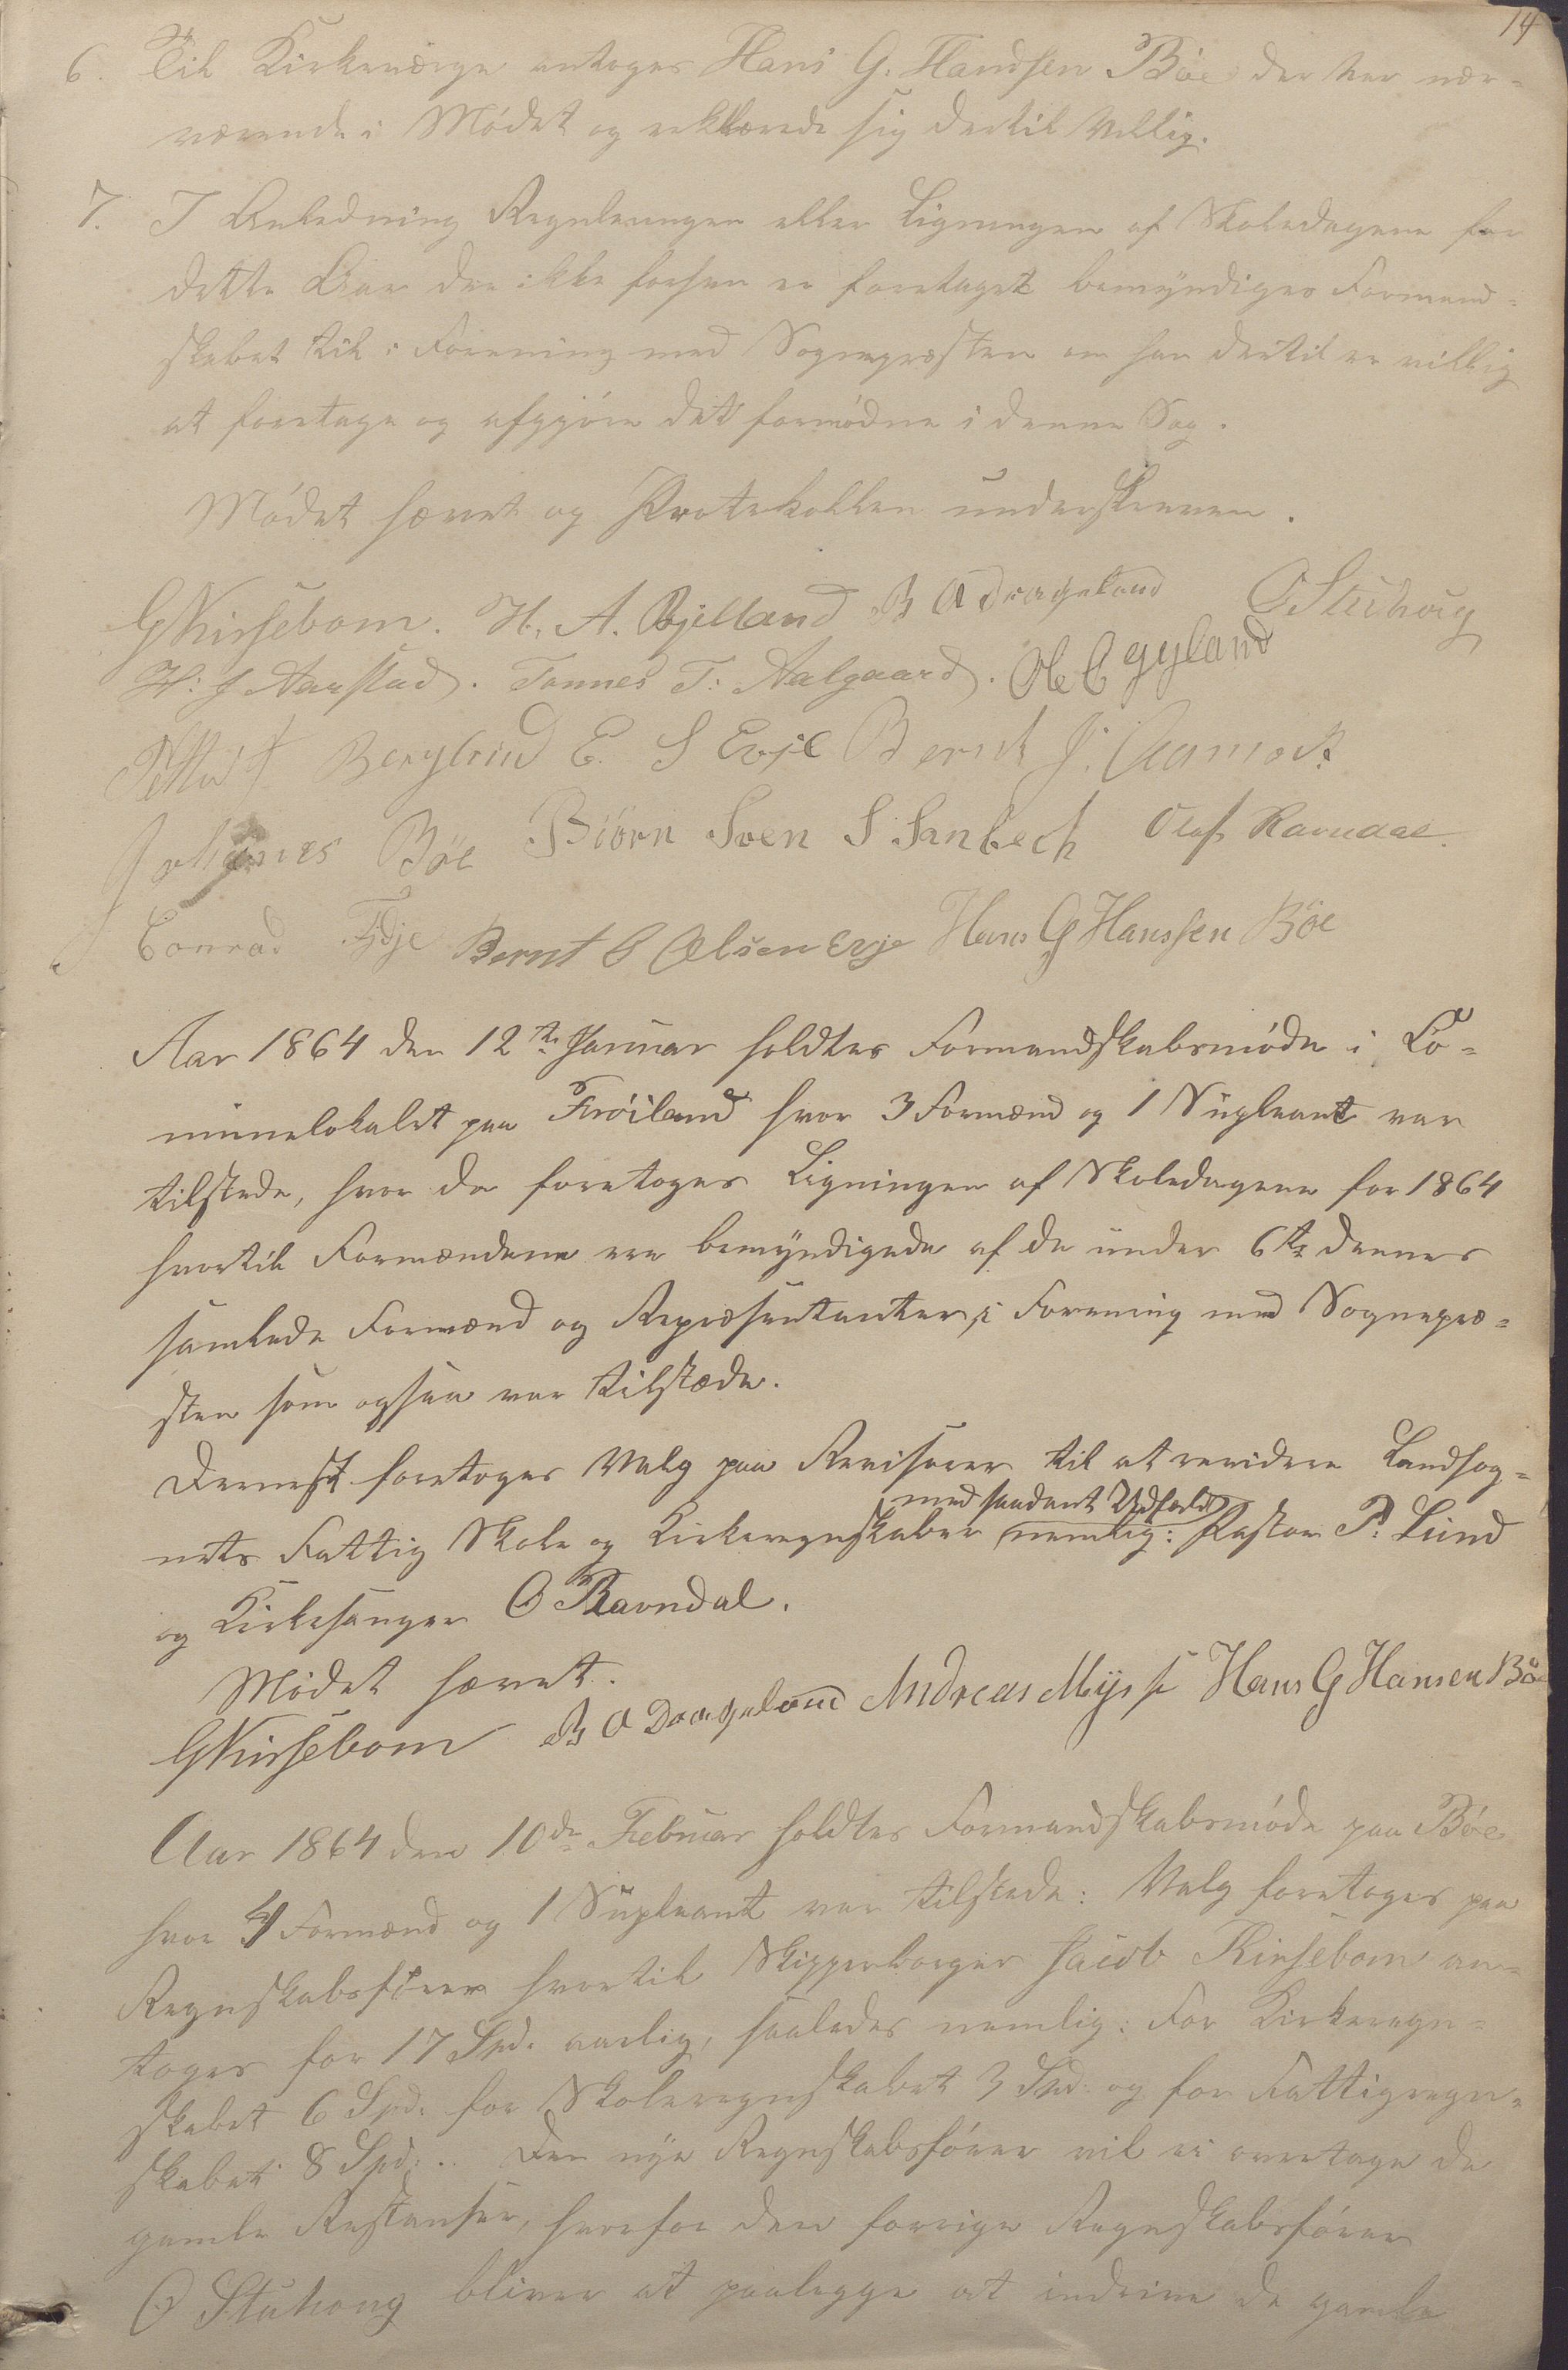 14
6. Til Kirkeværge antoges Hans G. Handsen Böe der var nær-
værende i Mödet og erklærede sig dertil villig.
7. I Anledning Reguleringen eller Ligningen af Skoledagene for
dette Aar der ikke forhen er foretaget bemyndiges Formand-
skabet til i Forening med Sognepræsten om han dertil er villig
at foretage og afgjöre det fornödne i denne Sag.
Mödet hævet og Protokollen underskreven.
G Kirsebom. H. A. Bjelland B A Drageland O Stuhoug
H: J Aarstad. Tonnes T: Aalgaard. Ole C Gyland
Berglind E. S Evje Bernt J. Aamodt
Johanes Böe Biörn Sven S Sanbech Olaf Ravndal.
Conrad Edje Bernt C Olsen Evje Hans G Hanssen Böe
Aar 1864 den 12te Januar holdtes Formandskabsmöde i Co-
munelokalet paa Fröiland hvor 3 Formænd og 1 Supleant var
tilstede, hvor da foretoges Ligningen af Skoledagene for 1864
hvortil Formændene ere bemyndigede af de under 6te dennes
samlede Formænd og Repræsentanter, i Forening med Sognepræ-
sten som ogsaa var tilstæde.
Dernest foretoges Valg paa Revisorer til at revidere Landsog-
med saadant Udfald
nets Fattig Skole og Kirkeregnskaber nemlig: Pastor P. Lund
og Kirkesanger O Ravndal.
Mödet hævet.
G Kirsebom B A Drageland Andreas Mysse Hans G Hansen Bö
Aar 1864 den 10de Februar holdtes Formandskabsmöde paa Böe
hvor 4 Formænd og 1 Supleant var tilstede: Valg foretoges paa
Regnskabsförer hvortil Skipperborger Jacob Kirsebom an-
toges for 17 Spd. aarlig, saaledes nemlig: For Kirkeregn-
skabet 6 Spd. for Skoleregnskabet 3 Spd. og for Fattigregn-
skabet 8 Spd. Den nye Regnskabsförer vil ei overtage de
gamle Restanser, hvorfor den forrige Regnskabsförer
O Stuhoug bliver at paalegge at indrive de gamle